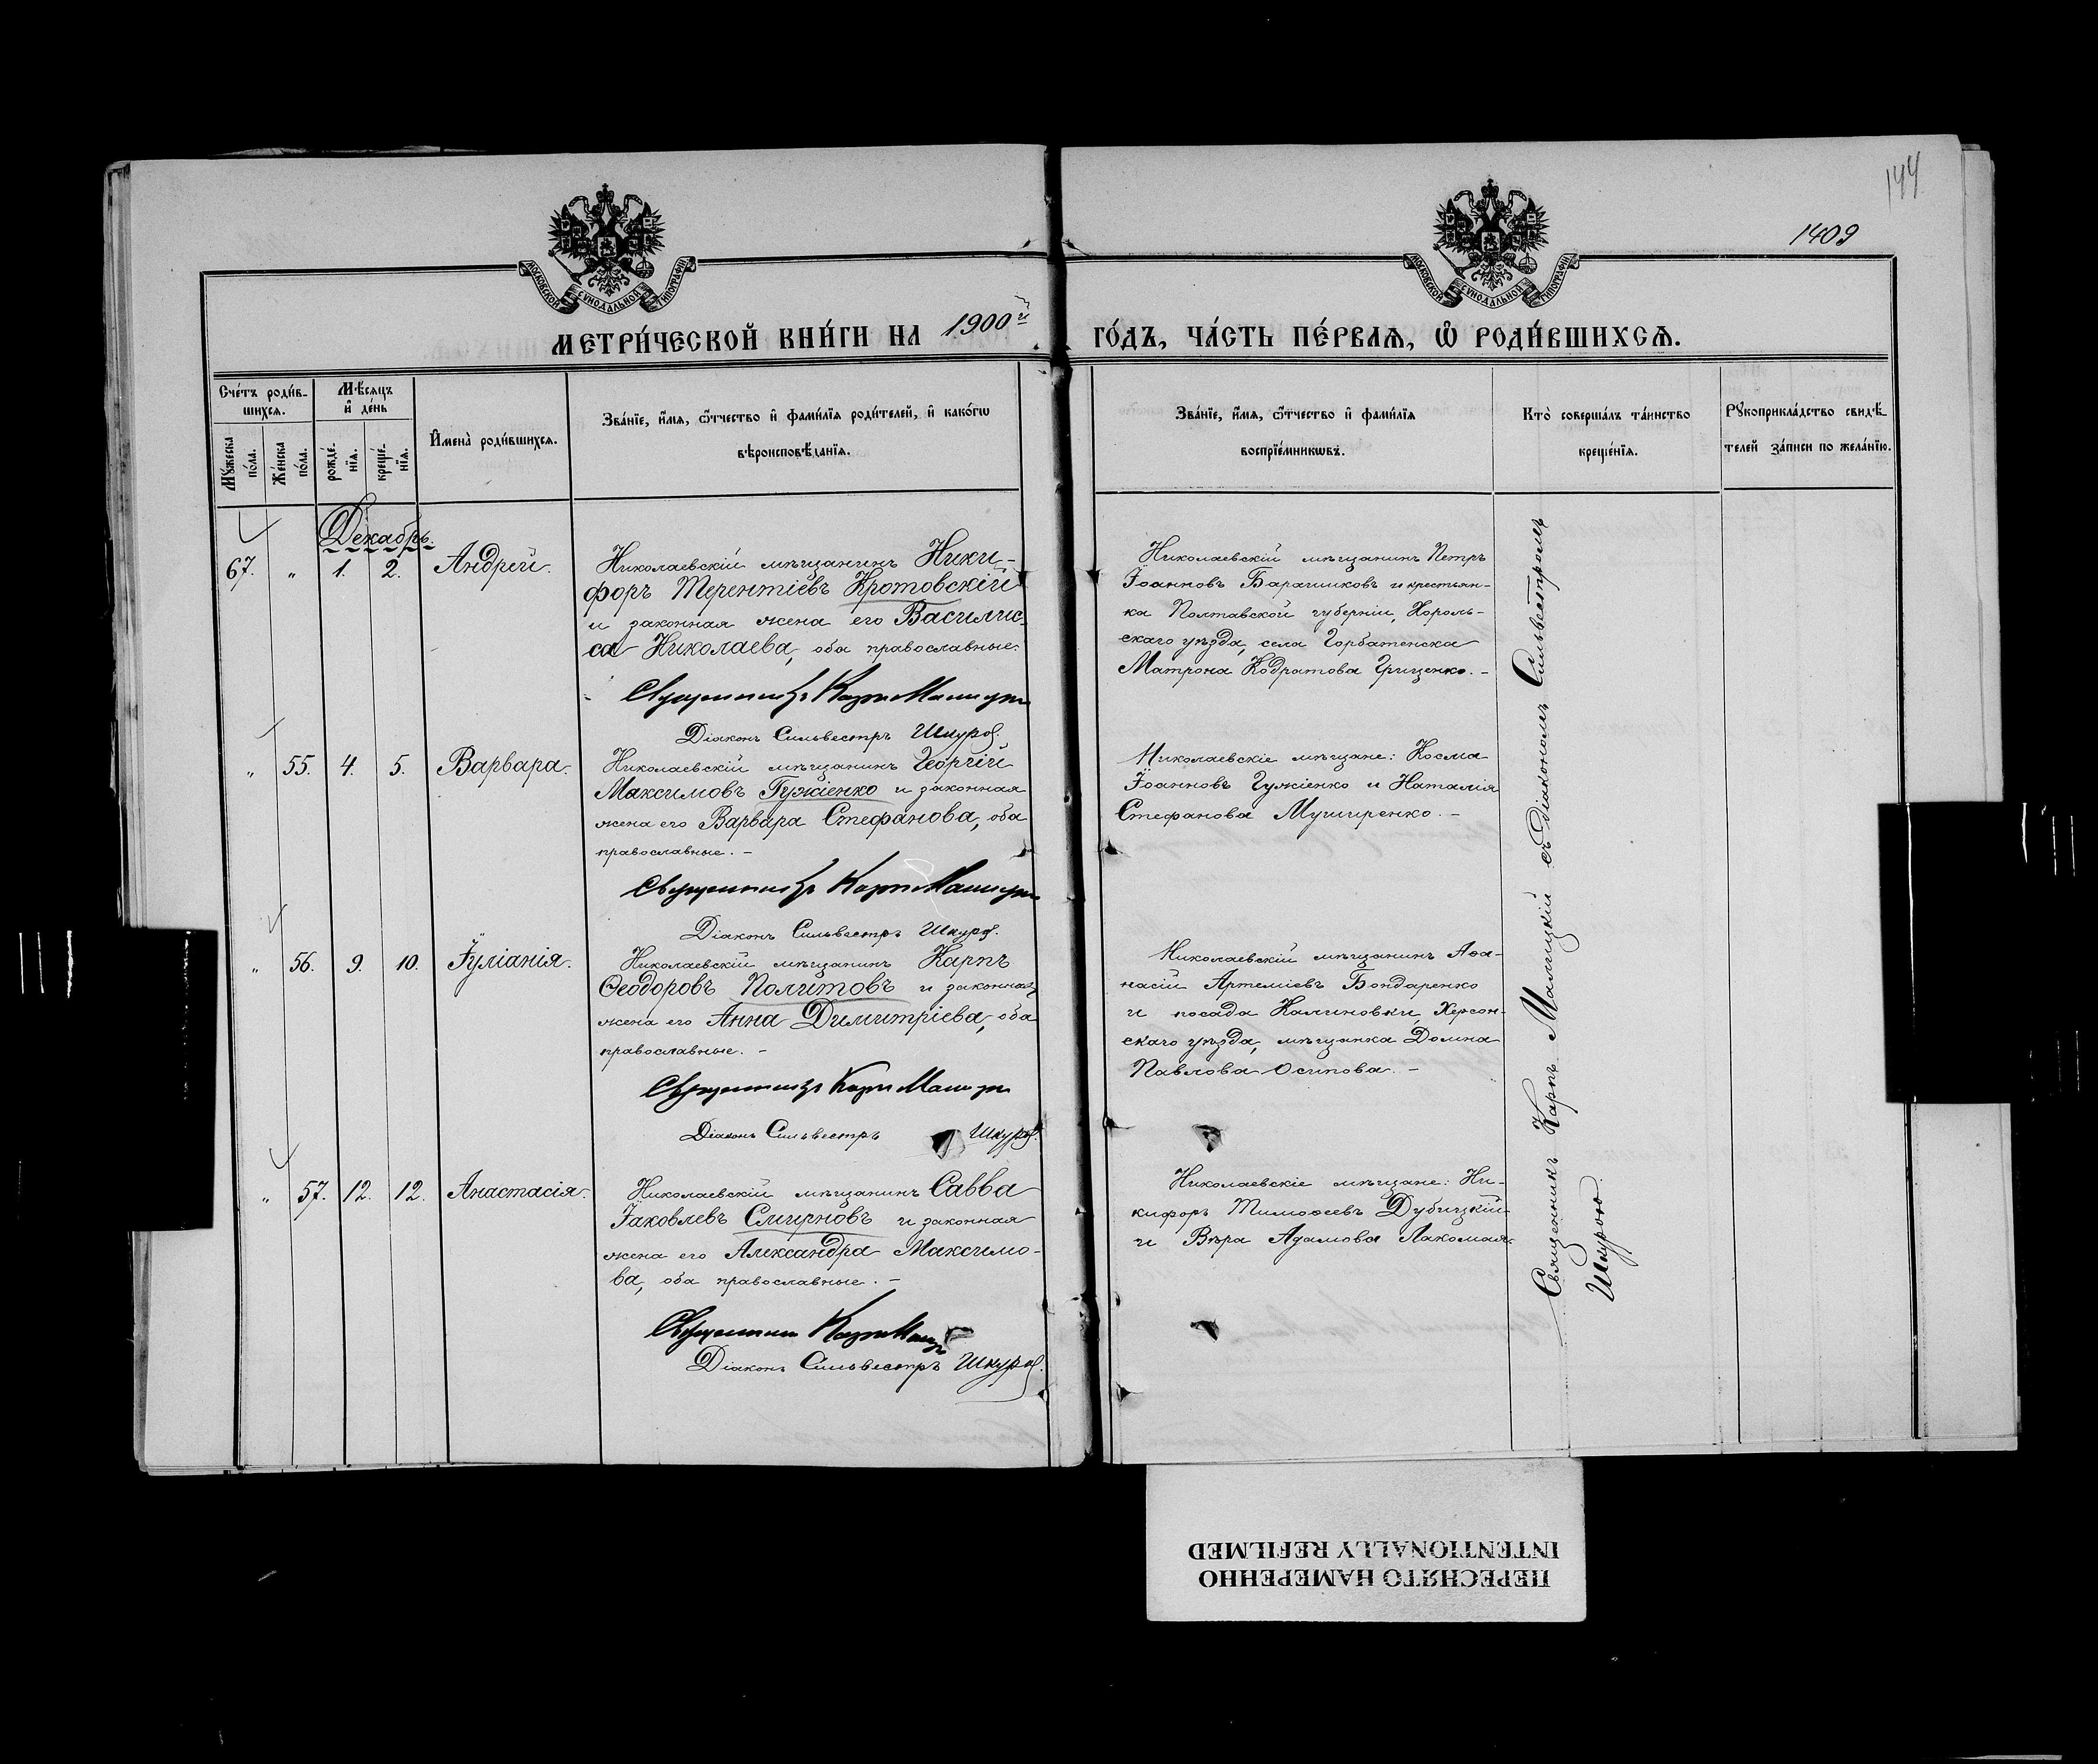 144
1409
МОСКОВСКОЙ СѴНОДАЛЬНОЙ ТИПОГРАФІИ
МОСКОВСКОЙ СѴНОДАЛЬНОЙ ТИПОГРАФІИ
МЕТРИ́ЧЕСКОЙ КНИ́ГИ НА 1900й ГО́ДЪ, ЧА́СТЬ ПЕ́РВАЯ, Ѡ҆ РОДИ́ВШИХСЯ.
Сче́тъ роди́в-
шихся.
Мѣ́сяцъ
и҆ де́нь
Мꙋ́жеска
по́ла.
Же́нска
по́ла.
рожде́-
нїя.
креще́-
нїя.
И҆мена̀ роди́вшихся.
Зва́нїе, и҆́мя, ѻ҆́тчество и҆ фами́лїя роди́телей, и҆ како́гѡ
вѣроисповѣ́данїя.
Зва́нїе, и҆́мя, ѻ҆́тчество и҆ фами́лїя
воспрїе́мникѡвъ.
Кто̀ соверша́лъ та́инство
креще́нїя.
Рꙋкоприкла́дство свидѣ́-
телей за́писи по жела́нїю.
Декабрь.
67. " 1. 2. Андрей.
Николаевскій мѣщанинъ Ники-
форъ Терентіевъ Кротовскій
и законная жена его Василис-
са Николаева, оба православные.
Священникъ Карпъ Малицкій
Діаконъ Сильвестръ Шкура.
Николаевскій мѣщанинъ Петръ
Іоанновъ Барашиковъ и крестьян-
ка Полтавской губерніи, Хороль-
скаго уѣзда, села Горбатенска
Матрона Кодратова Грищенко. -
" 55. 4. 5. Варвара.
Николаевскій мѣщанинъ Георгій
Максимовъ Гужіенко и законная
жена его Варвара Стефанова, оба
православные. -
Священникъ Карпъ Малицкій
Діаконъ Сильвестръ Шкура.
Николаевскіе мѣщане: Косма
Іоанновъ Гужіенко и Наталія
Стефанова Муширенко. -
" 56. 9. 10. Іуліанія.
Николаевскій мѣщанинъ Карпъ
Ѳеодоровъ Политовъ и законная
жена его Анна Димитріева, оба
православные. -
Священникъ Карпъ Малицкій
Діаконъ Сильвестръ Шкура.
Николаевскій мѣщанинъ Аѳа-
насій Артеміевъ Бондаренко
и посада Калиновки, Херсон-
скаго уѣзда, мѣщанка Домна
Павлова Осипова. -
" 57. 12. 12. Анастасія.
Николаевскій мѣщанинъ Савва
Іаковлевъ Смирновъ и законная
жена его Александра Максимо-
ва, оба православные. -
Священникъ Карпъ Малицкій
Діаконъ Сильвестръ Шкура.
Николаевскіе мѣщане: Ни-
кифоръ Тимоѳеевъ Дубицкій
и Вѣра Адамова Лакомая.
Священникъ Карпъ Малицкій съ діакономъ Сильвестромъ
Шкурою.
ПЕРЕСНЯТО НАМЕРЕННО
INTENTIONALLY REFILMED